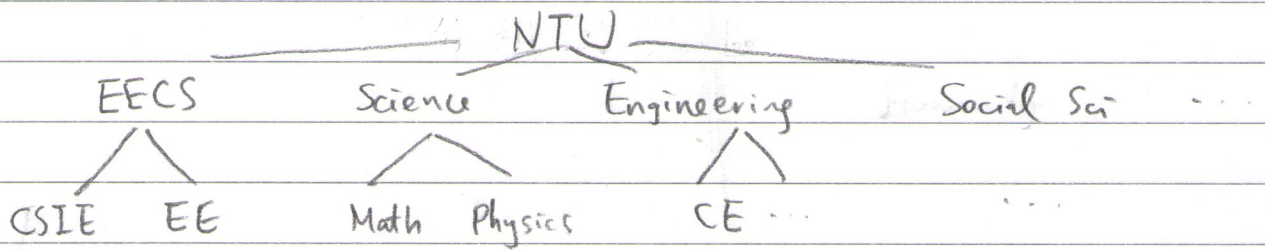 NTU
EECS Science Engineering Social Sci ...
CSIE EE Math Physics CE ... ...